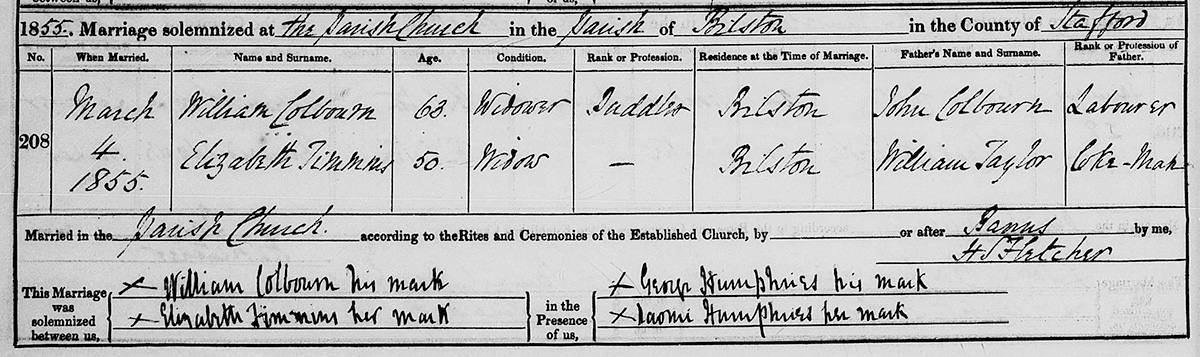 1855. Marriage solemnized at the Parish Church in the Parish of Bilston in the County of Stafford
No. When Married. Name and Surname. Age. Condition. Rank or Profession. Residence at the Time of Marriage. Father's Name and Surname. Rank or Profession of Father.
March William Colbourn 63. Widower Puddler Bilston John Colbourn Labourer
208 4. Elizabeth Timmins 50. Widow — Bilston William Taylor Coke-Man
1855.
Married in the Parish Church. according to the Rites and Ceremonies of the Established Church, by or after Banns by me,
H S Fletcher
This Marriage was solemnized between us, X William Colbourn his mark in the Presence of us, X George Humphries his mark
X Elizabeth Timmins her mark X Naomi Humphries her mark